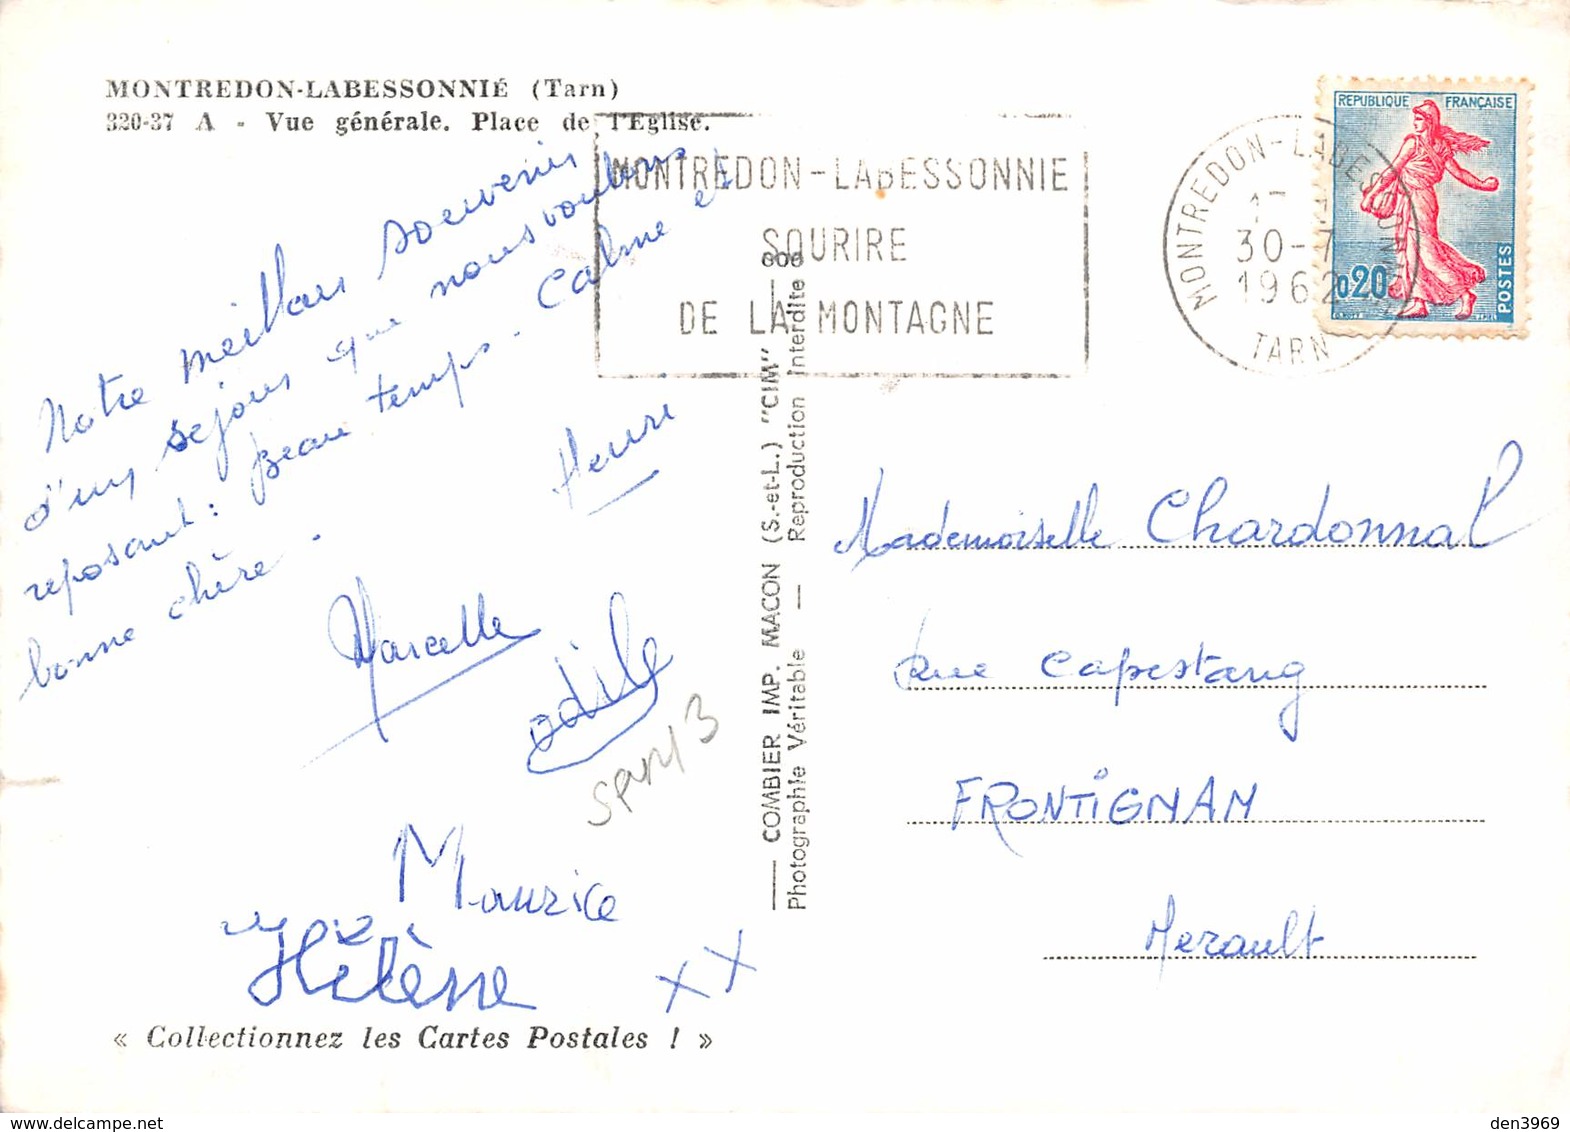 MONTREDON-LABESSONNIÉ (Tarn)
320-37 A - Vue générale. Place de l'Eglise.
Notre meilleurs souvenirs
d'un séjour que nous voulons
reposant : Beau temps - Calme et
bonne chère.
Henri
Marcelle
odile
Maurice
Hélène
XX
« Collectionnez les Cartes Postales ! »
COMBIER IMP. MACON (S.-et-L.) "CIM"
Photographie Véritable — Reproduction Interdite
MONTREDON-LABESSONNIE
SOURIRE
DE LA MONTAGNE
MONTREDON-LABESSONNIE
30-7
1962
TARN
REPUBLIQUE FRANÇAISE
0,20
POSTES
Mademoiselle Chardonnal
rue Capestang
FRONTIGNAN
Herault
delcampe.net
den3969